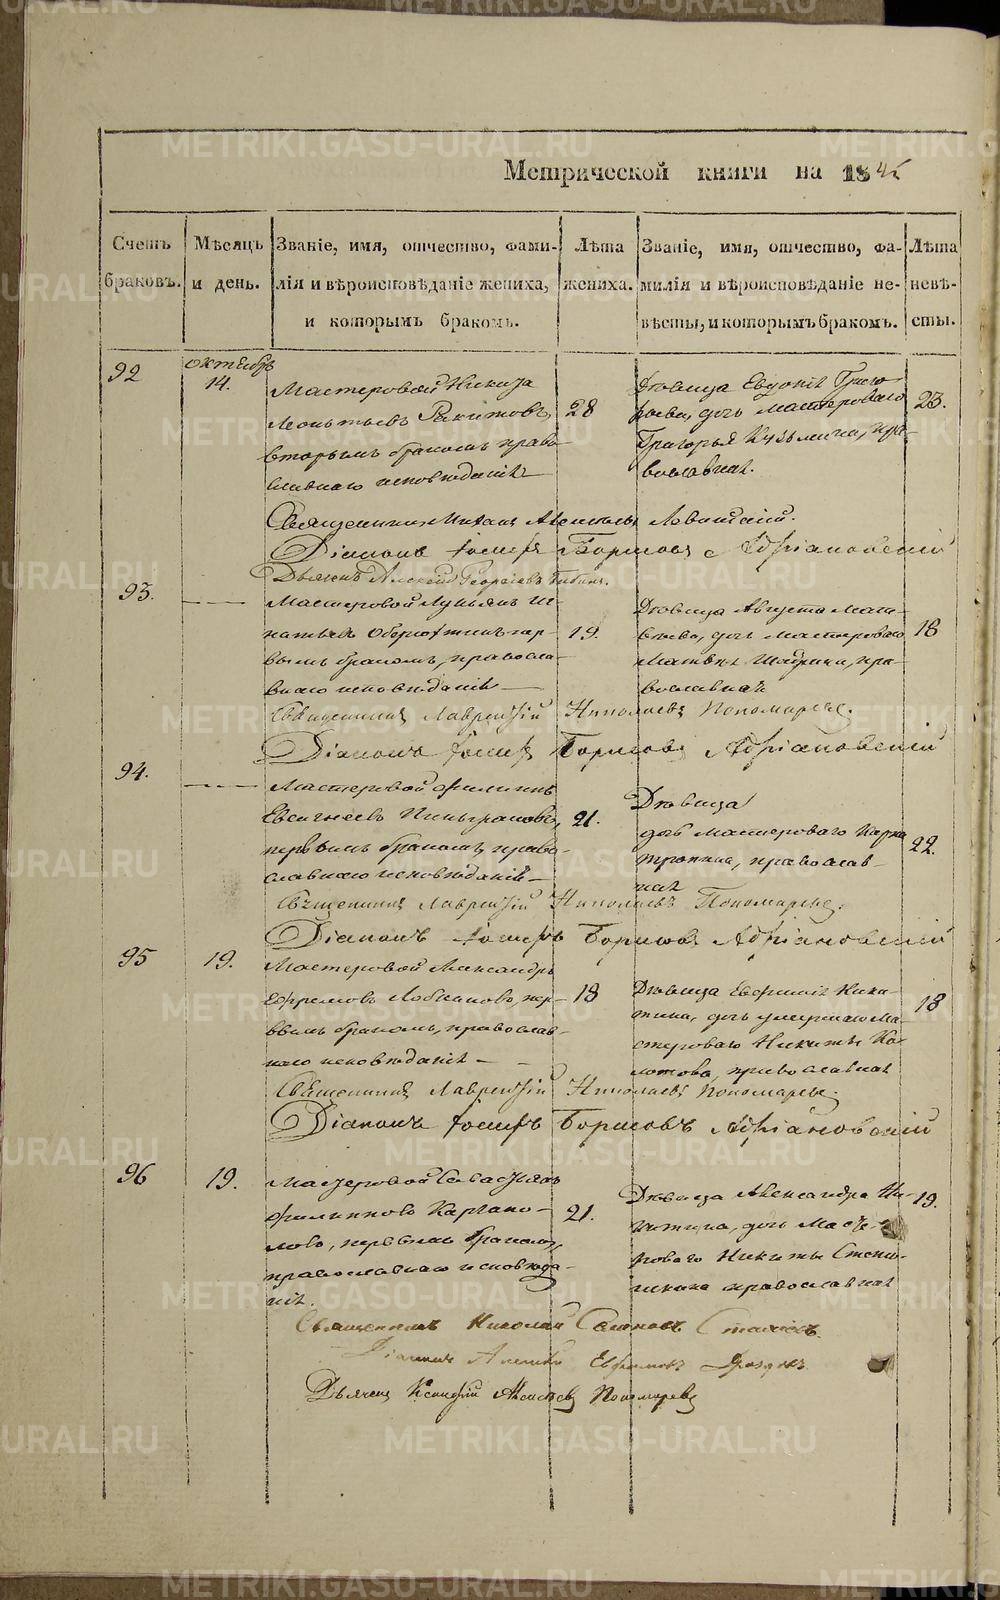 METRIKI.GASO-URAL.RU
Метрической книги на 1845
Счетъ браковъ.
Мѣсяцъ и день.
Званіе, имя, отчество, фами-
лія и вѣроисповѣданіе жениха,
и которымъ бракомъ.
Лѣта жениха.
Званіе, имя, отчество, фа-
милія и вѣроисповѣданіе не-
вѣсты, и которымъ бракомъ.
Лѣта невѣ-
сты.
92
октябрь
14.
Мастеровой Никита
Леонтьевъ
вторымъ бракомъ право
славнаго исповѣданія
28
Дѣвица Евдокія Григо
рьева, дочь мастероваго
Григорья Кузьмина, пра-
вославная.
23.
Священникъ
Діаконъ Іосифъ Борисовъ Адріановскій
Дьячекъ Алексѣй Георгіевъ
93.
Мастеровой Лукьянъ Иг-
натьевъ пер-
вымъ бракомъ, правосла-
внаго исповѣданія
19.
Дѣвица Августа Мат-
вѣева, дочь мастероваго
Матвѣя пра-
вославная
18
Священникъ Лаврентій Николаевъ Пономаревъ.
Діаконъ Іосифъ Борисовъ Адріановскій
94.
Мастеровой Филиппъ
Евсигнеевъ
первымъ бракомъ право-
славнаго исповѣданія
21.
Дѣвица
дочь мастероваго Карпа
православ-
ная
22.
Священникъ Лаврентій Николаевъ Пономаревъ.
Діаконъ Іосифъ Борисовъ Адріановскій
95
19.
Мастеровой Александръ
Ефремовъ Лобановъ, пер-
вымъ бракомъ, православ-
наго исповѣданія
18
Дѣвица Евфимія Ники-
тина, дочь умершаго ма-
стероваго Никиты
православная
18
Священникъ Лаврентій Николаевъ Пономаревъ.
Діаконъ Іосифъ Борисовъ Адріановскій
96
19.
Мастеровой Севастьянъ
Филипповъ Каргапо-
ловъ, первымъ бракомъ,
православнаго исповѣда-
нія.
21.
Дѣвица Александра Ни-
китина, дочь Масте-
роваго Никиты
православная
19.
Священникъ Николай
Діаконъ Ефимовъ
Дьячекъ Алексѣевъ Пономаревъ